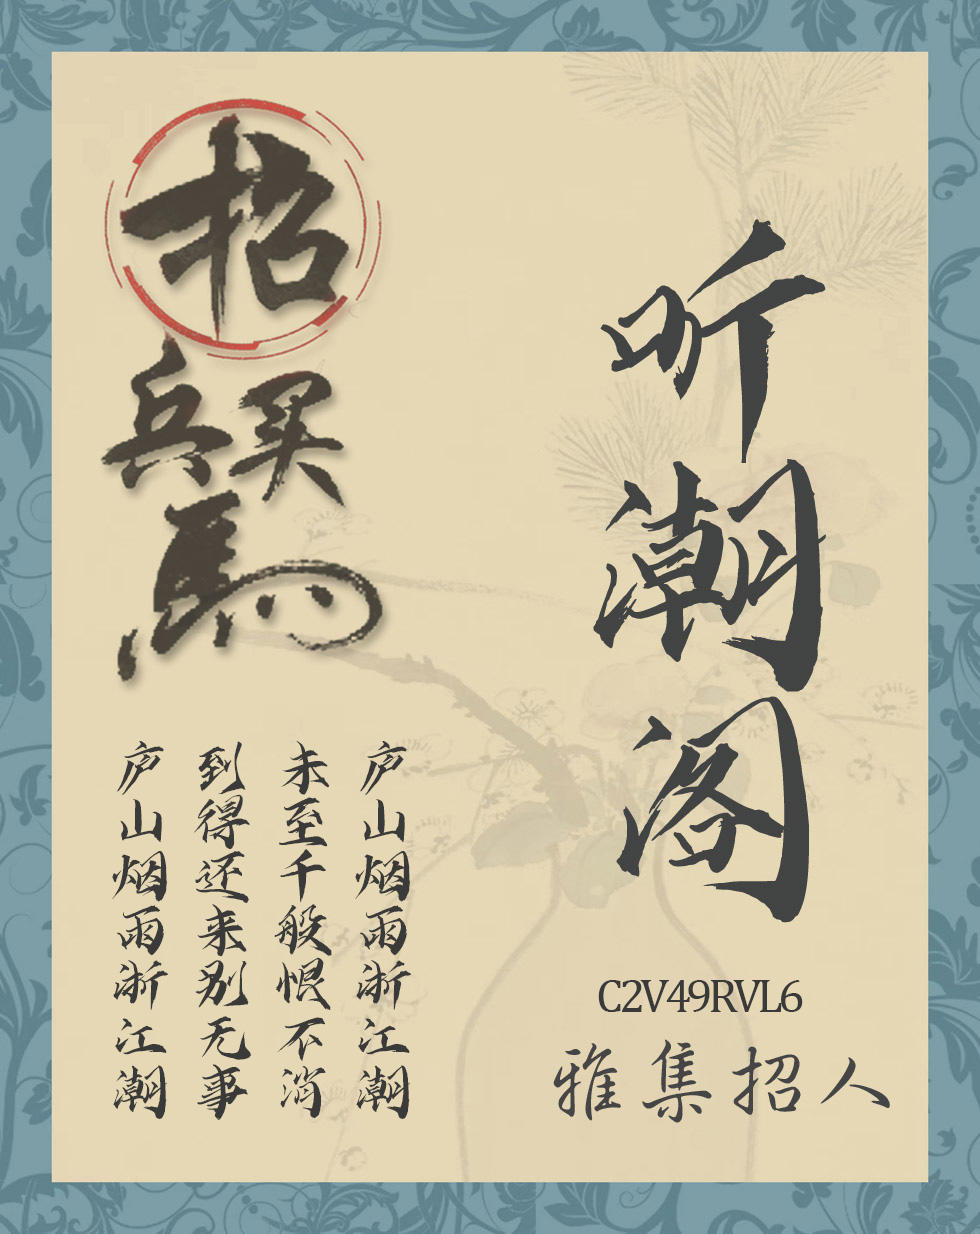 招
兵买
馬
听潮阁
庐山烟雨浙江潮
未至千般恨不消
到得还来别无事
庐山烟雨浙江潮
C2V49RVL6
雅集招人